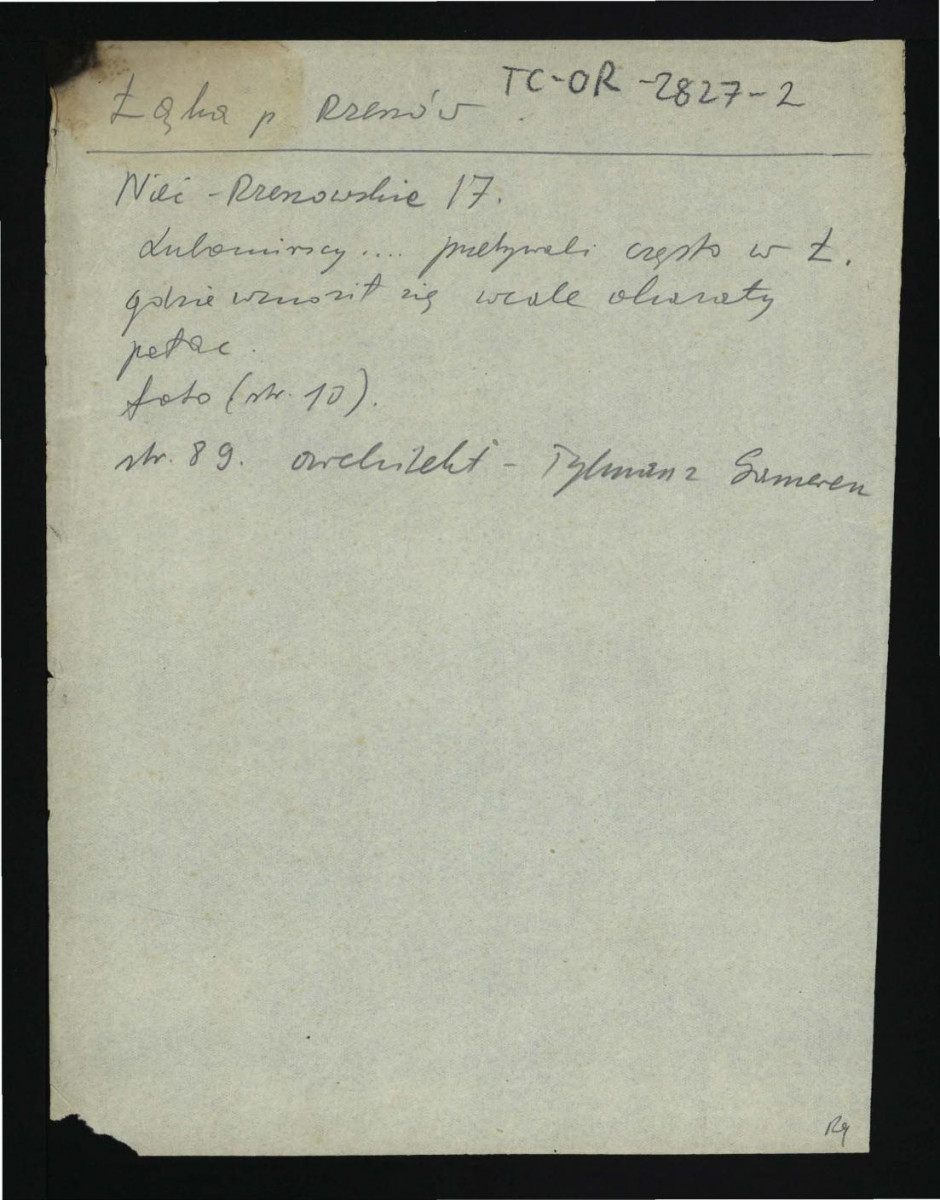 Łąka p Rzeszów TC-OR-2827-2
Nieć - Rzeszowskie 17.
Lubomirscy.... przebywali często w Ł.
gdzie wznosił się wcale okazały
pałac.
foto (str. 10).
str. 89. architekt - Tylman z Gameren
Rz